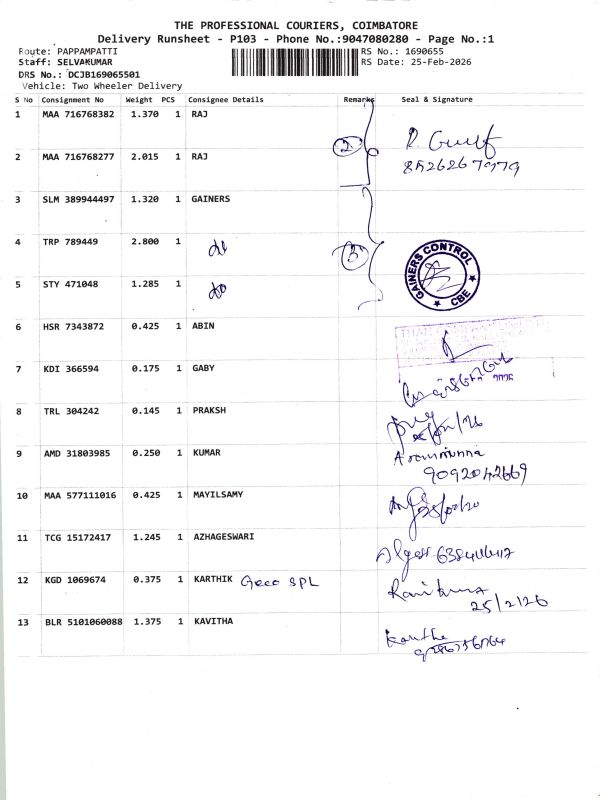 THE PROFESSIONAL COURIERS, COIMBATORE
Delivery Runsheet - P103 - Phone No.:9047080280 - Page No.:1
Route: PAPPAMPATTI RS No.: 1690655
Staff: SELVAKUMAR RS Date: 25-Feb-2026
DRS No.: DCJB169065501
Vehicle: Two Wheeler Delivery
S No Consignment No Weight PCS Consignee Details Remarks Seal & Signature
1 MAA 716768382 1.370 1 RAJ
2 MAA 716768277 2.015 1 RAJ 2
3 SLM 389944497 1.320 1 GAINERS
4 TRP 789449 2.800 1 do 3
GAINERS CONTROL CBE
5 STY 471048 1.285 1 do
6 HSR 7343872 0.425 1 ABIN
7 KDI 366594 0.175 1 GABY
8 TRL 304242 0.145 1 PRAKSH
9 AMD 31803985 0.250 1 KUMAR
9092042669
10 MAA 577111016 0.425 1 MAYILSAMY
11 TCG 15172417 1.245 1 AZHAGESWARI
12 KGD 1069674 0.375 1 KARTHIK SPL
25/2/26
13 BLR 5101060088 1.375 1 KAVITHA